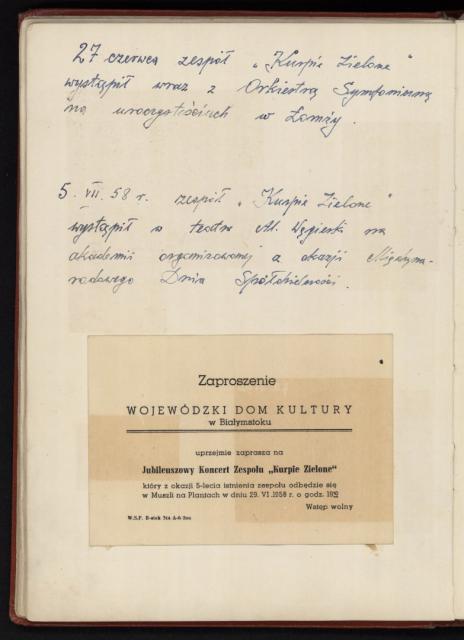 27 czerwca zespół „Kurpie Zielone"
wystąpił wraz z Orkiestrą Symfoniczną
na uroczystościach w Łomży.
5. VII. 58 r. zespół „Kurpie Zielone"
wystąpił w teatrze Al. Węgierki na
akademii organizowanej z okazji Międzyna-
rodowego Dnia Spółdzielczości.
Zaproszenie
WOJEWÓDZKI DOM KULTURY
w Białymstoku
uprzejmie zaprasza na
Jubileuszowy Koncert Zespołu „Kurpie Zielone"
który z okazji 5-lecia istnienia zespołu odbędzie się
w Muszli na Plantach w dniu 29. VI. 1958 r. o godz.
Wstęp wolny
W.S.P. B-stok